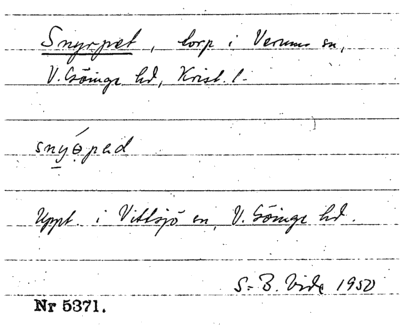 Snyrpet, torp i Verums sn,
V. Göinge hd, Krist. l.
snýɵpad
Uppt. i Vittsjö sn, V. Göinge hd.
S-B. Vide 1950
Nr 5371.